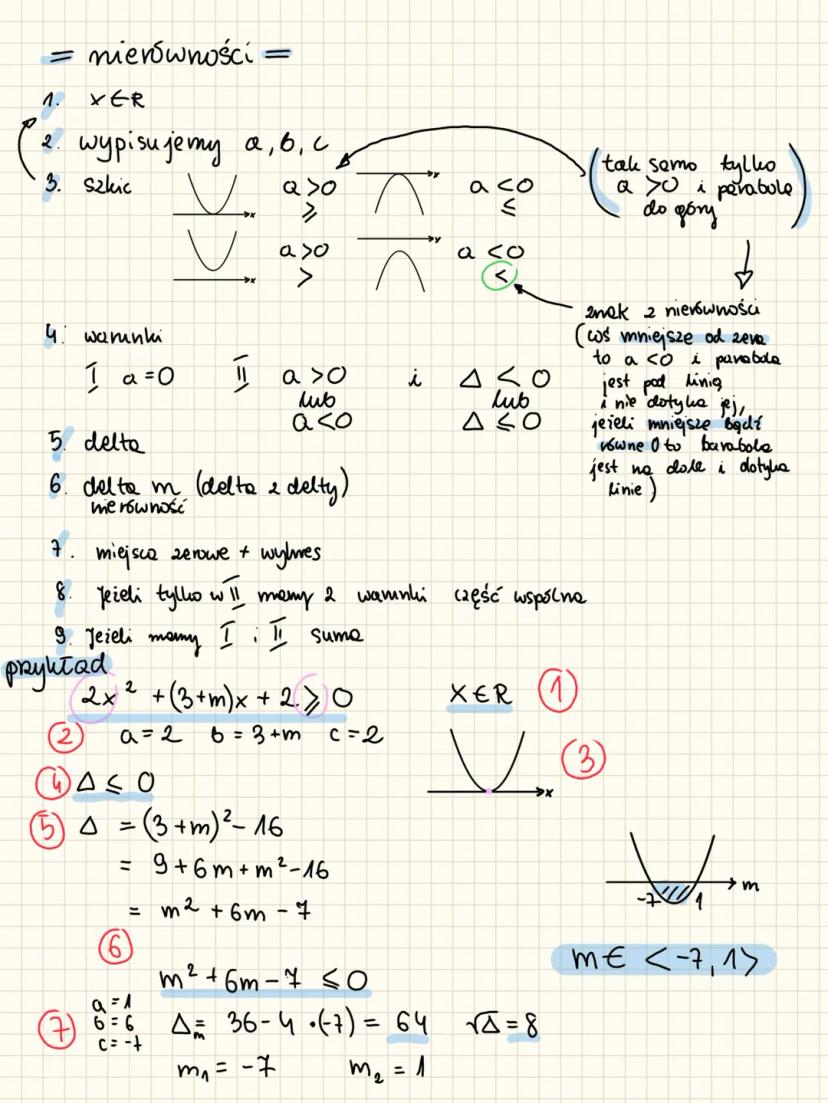 = nierówności =
1. x∈R
2. wypisujemy a, b, c
3. szkic
x
a >0
⩾
x
a <0
≤
(tak samo tylko
a >0 i parabola
do góry)
x
a >0
>
y
a <0
<
znak z nierówności
(coś mniejsze od zera
to a <0 i parabola
jest pod linią
i nie dotyka jej,
jeżeli mniejsze bądź
równe 0 to barabola
jest na dole i dotyka
linie)
4. warunki
I a =0 II a >0 i Δ < 0
lub lub
a <0 Δ ≤ 0
5. delta
6. delta m (delta z delty)
nierówność
7. miejsca zerowe + wykres
8. jeżeli tylko w II mamy 2 warunki część wspólna
9. jeżeli mamy I i II suma
przykład
2x² + (3+m)x + 2 ⩾ 0 x∈R ①
② a = 2 b = 3+m c = 2
③
x
④ Δ ≤ 0
⑤ Δ = (3+m)² - 16
= 9+6m+m²-16
= m² + 6m - 7
-7 1 m
⑥
m∈ <-7, 1>
m² + 6m - 7 ≤ 0
⑦ a = 1
b = 6
c = -7
Δm = 36 - 4 · (-7) = 64 √Δ = 8
m₁ = -7 m₂ = 1